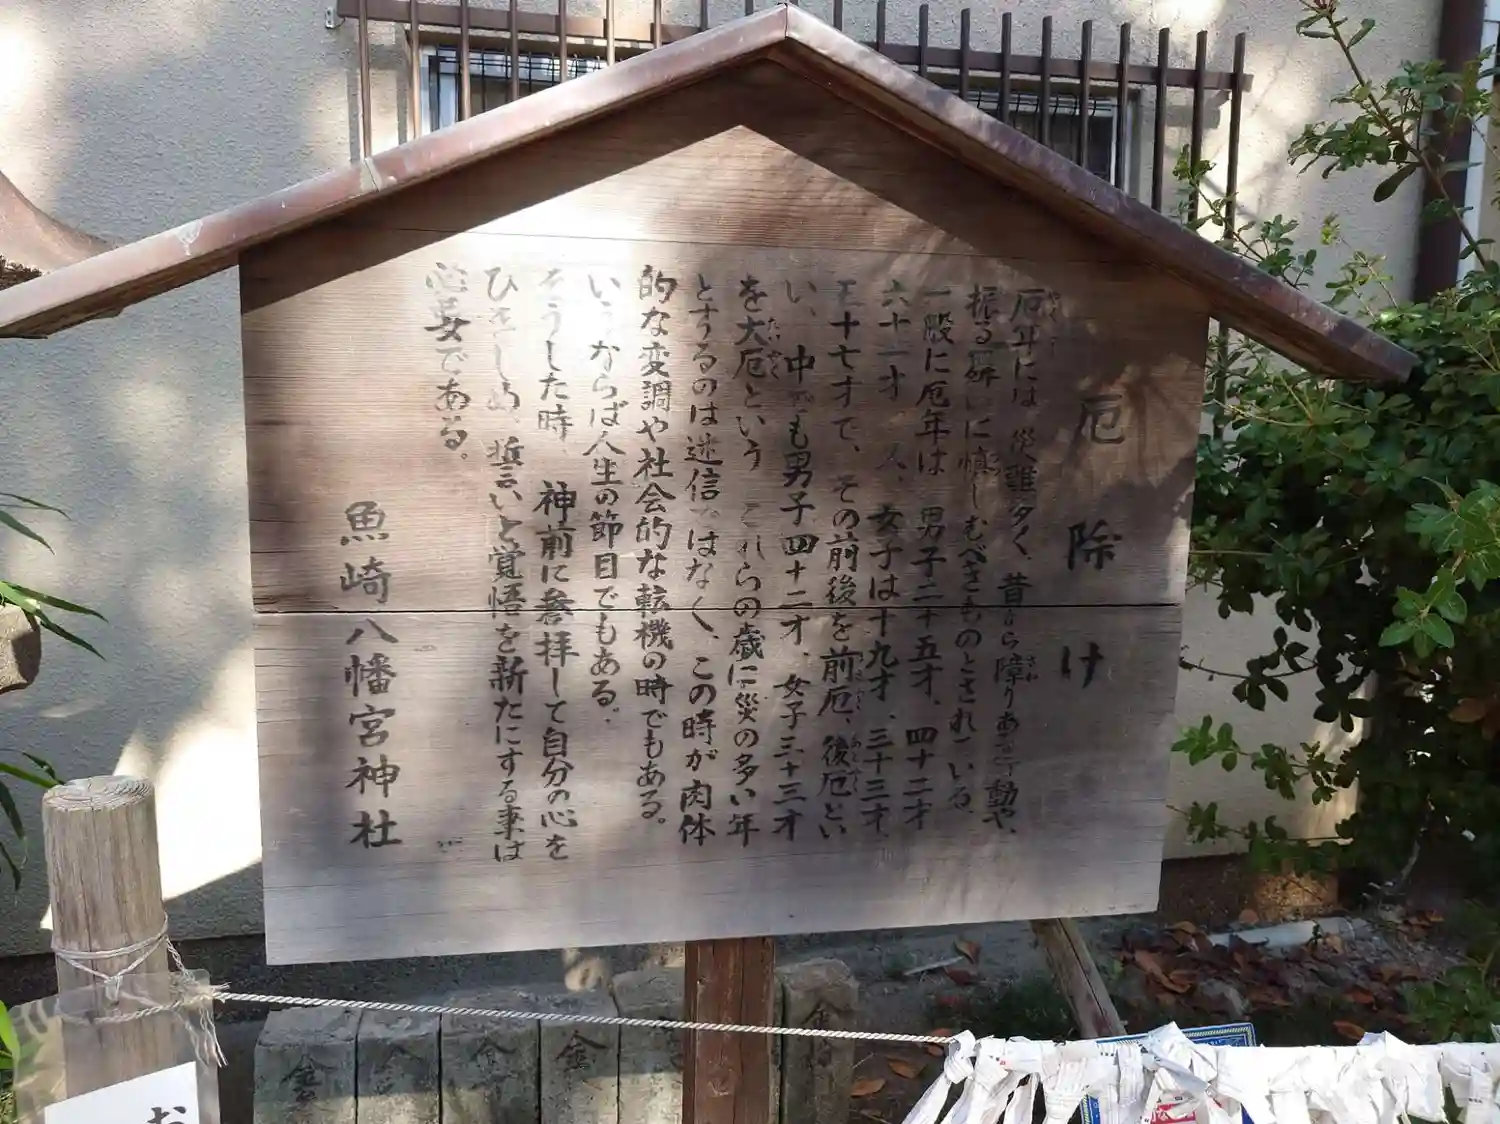 厄除け
厄年には、災難多く、昔から障りある行動や、
振る舞いに慎しむべきものとされている。
一般に厄年は、男子二十五才、四十二才
六十一才、女子は十九才、三十三才、
三十七才で、その前後を前厄、後厄とい
い、中でも男子四十二才、女子三十三才
を大厄という。これらの歳に災の多い年
とするのは迷信ではなく、この時が肉体
的な変調や社会的な転機の時でもある。
いうならば人生の節目でもある。
そうした時、神前に参拝して自分の心を
ひきしめ、誓いと覚悟を新たにする事は
必要である。
魚崎八幡宮神社
お
金
金
金
金